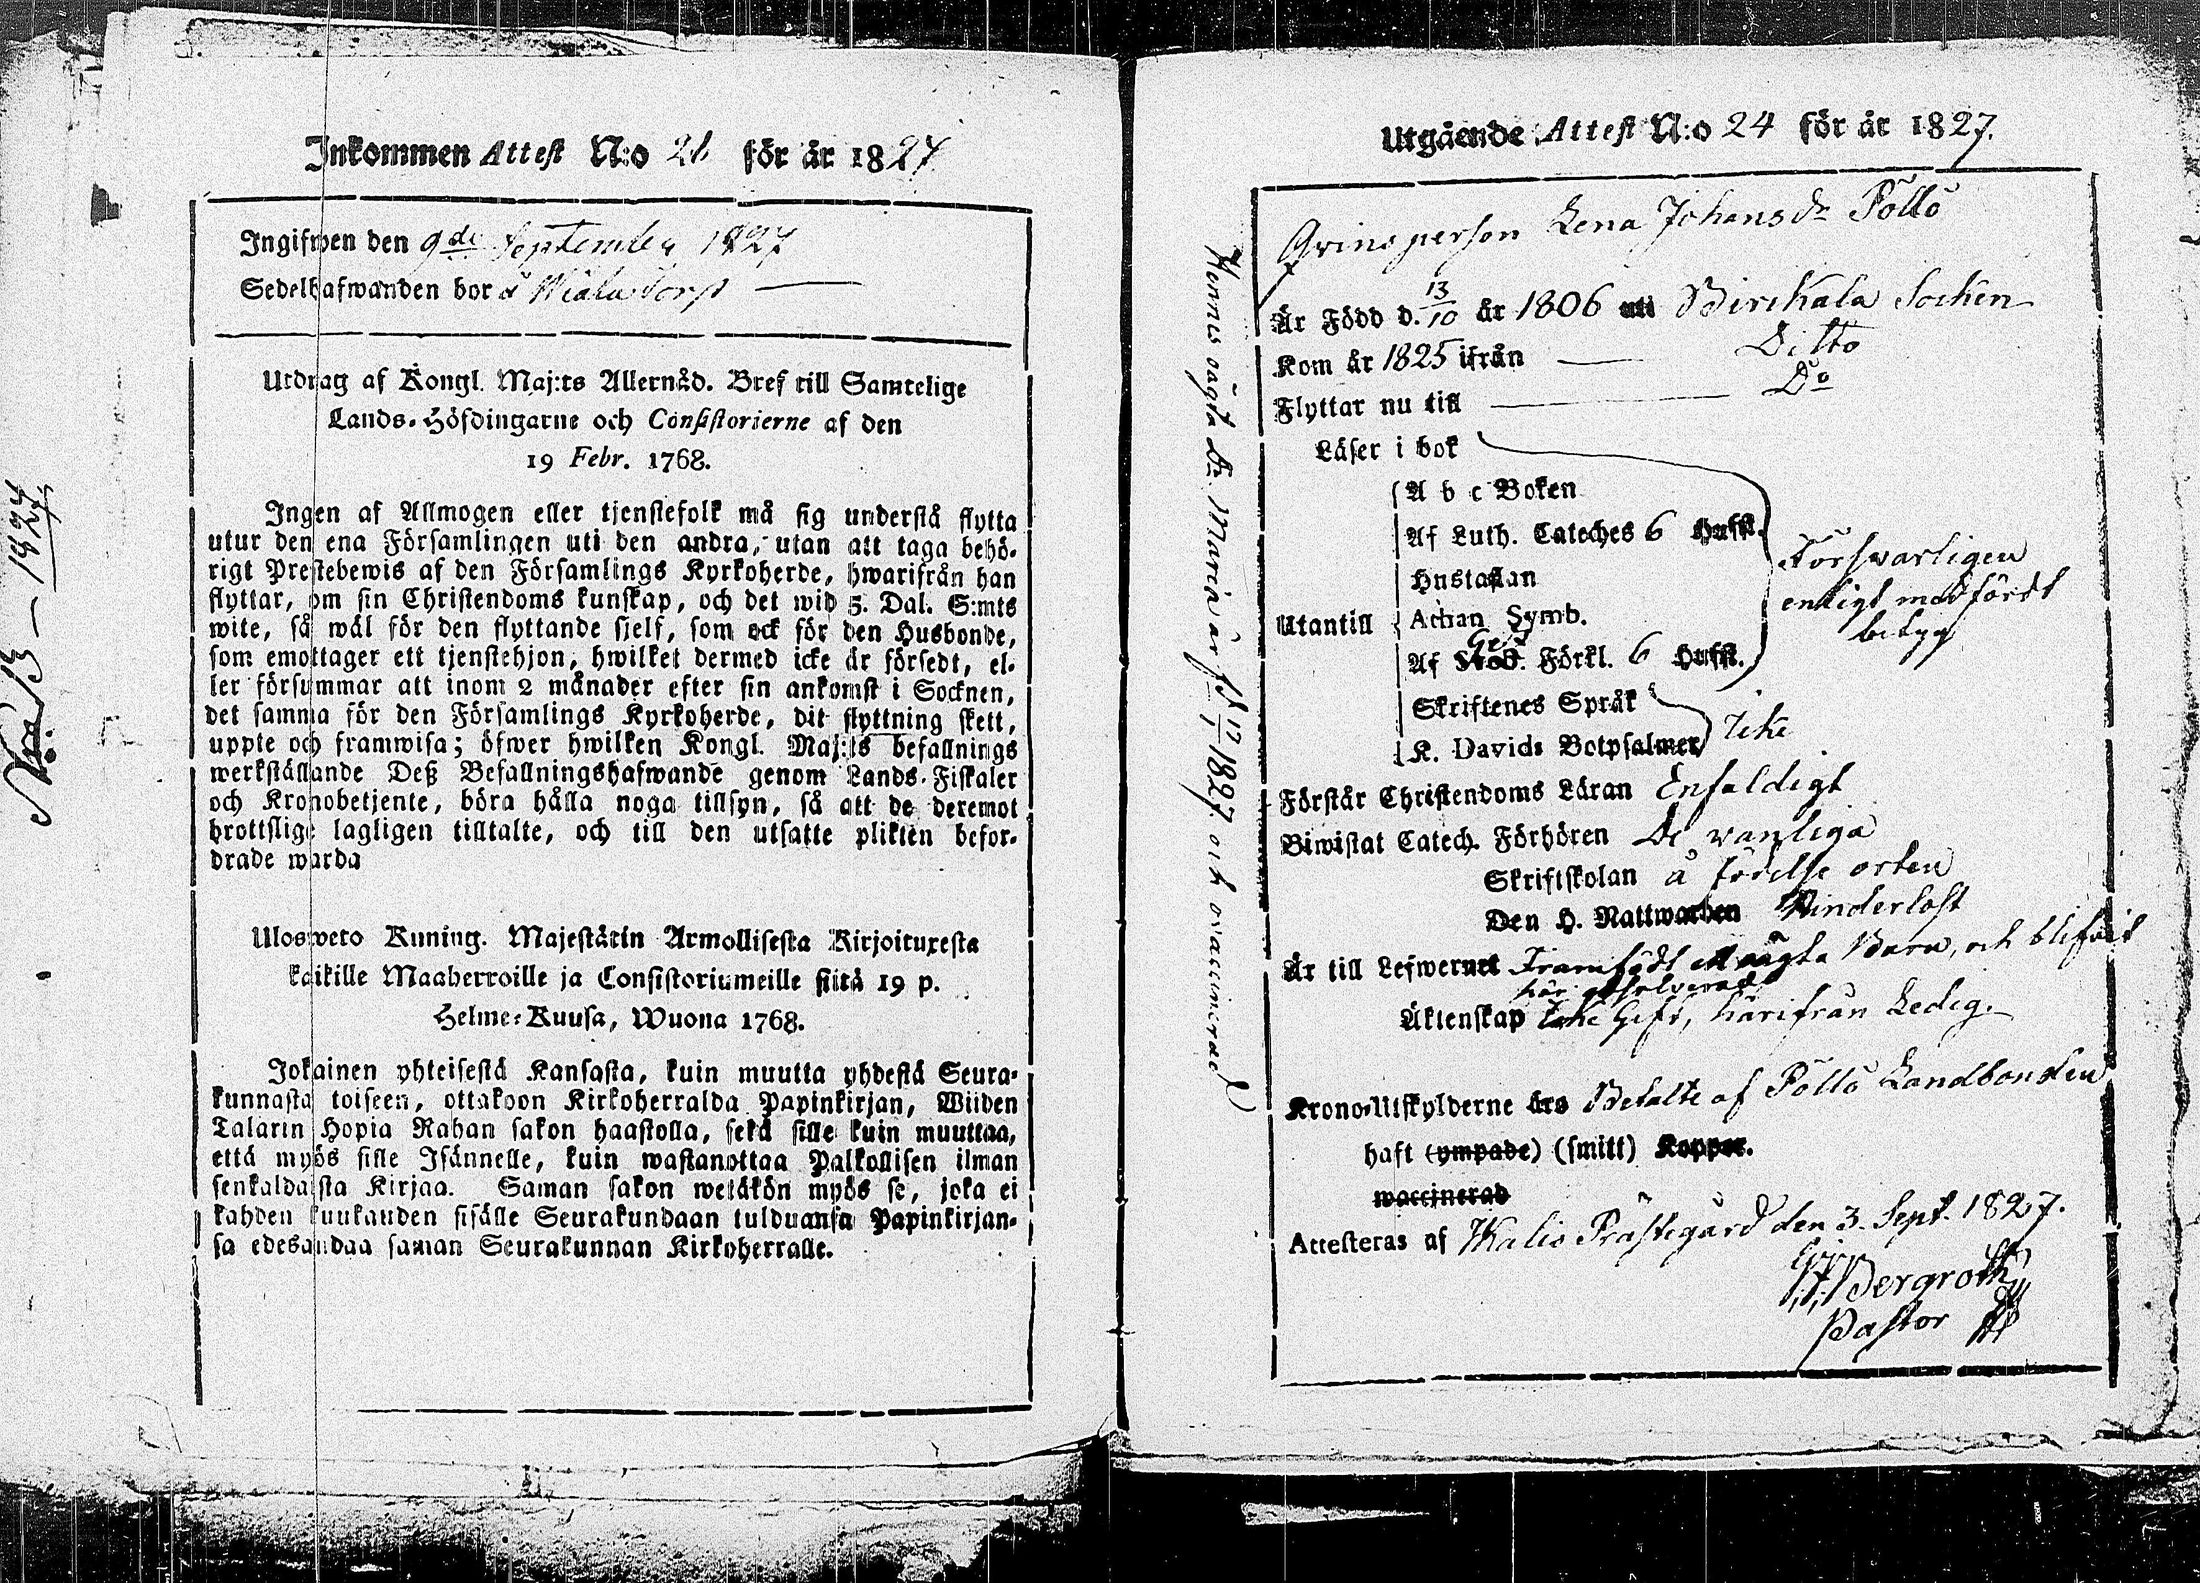 Inkommen Attest N:o 26 för år 1827
Ingifwen den 9de September 1827
Sedelhafwanden bor å Wiala Torp
Utdrag af Kongl. Maj:ts Allernåd. Bref till Samtelige
Lands-Höfdingarne och Consistorierne af den
19 Febr. 1768.
Ingen af Allmogen eller tjenstefolk må sig understå flytta
utur den ena Församlingen uti den andra, utan att taga behö-
rigt Prestebewis af den Församlings Kyrkoherde, hwarifrån han
flyttar, om sin Christendoms kunskap, och det wid 5. Dal. S:mts
wite, så wäl för den flyttande sjelf, som ock för den Husbonde,
som emottager ett tjenstehjon, hwilket dermed icke är försedt, el-
ler försummar att inom 2 månader efter sin ankomst i Socknen,
det samma för den Församlings Kyrkoherde, dit flyttning skett,
uppte och framwisa; öfwer hwilken Kongl. Maj:ts befallnings
werkställande Deß Befallningshafwande genom Lands-Fiskaler
och Kronobetjente, böra hålla noga tillsyn, så att de deremot
brottslige lagligen tilltalte, och till den utsatte plikten befor-
drade warda
Ulosweto Kuning. Majestätin Armollisesta Kirjoituxesta
kaikille Maaherroille ja Consistoriumeille siitä 19 p.
Helme-Kuusa, Wuona 1768.
Jokainen yhteisestä Kansasta, kuin muutta yhdestä Seura-
kunnasta toiseen, ottakoon Kirkoherralda Papinkirjan, Wiiden
Talarin Hopia Rahan sakon haastolla, sekä sille kuin muuttaa,
että myös sille Isännelle, kuin wastanottaa Palkollisen ilman
senkaldaista Kirjaa. Saman sakon wetäkön myös se, joka ei
kahden kuukauden sisälle Seurakundaan tulduansa Papinkirjan-
sa edesandaa saman Seurakunnan Kirkoherralle.
1827
Utgående Attest N:o 24 för år 1827.
Qvinsperson Lena Johansdr Pöllö
Är Född d. 13/10 år 1806 uti Birckala Sochen
Kom år 1825 ifrån Ditto
Flyttar nu till Do
Läser i bok
A b c Boken
Af Luth. Cateches 6 Hufst.
Hustaflan
Utantill
Athan Symb.
Gez
Af Sweb. Förkl. 6 Hufst.
Skriftenes Språk
K. Davids Botpsalmer
Försvarligen
enligt medfördt
betyg
Icke
Förstår Christendoms Läran Enfaldigt
Biwistat Catech. Förhören De vanliga
Skriftskolan å födelse orten
Den H. Nattwarden
Är till Lefwernet Framfödt oägta Barn, och blifvit
här absolverad
Äktenskap Icke Gift, härifrån Ledig.
Krono-Utskylderne års Betalte af Pöllö Landbonden
haft (ympade) (smitt) Koppor.
waccinerad
Attesteras af Kalis Prästegård den 3. Sept. 1827.
Bergroth
Pastor
Hennes oägta Dr. Maria är f. 17/1 1827. och vaccinerad